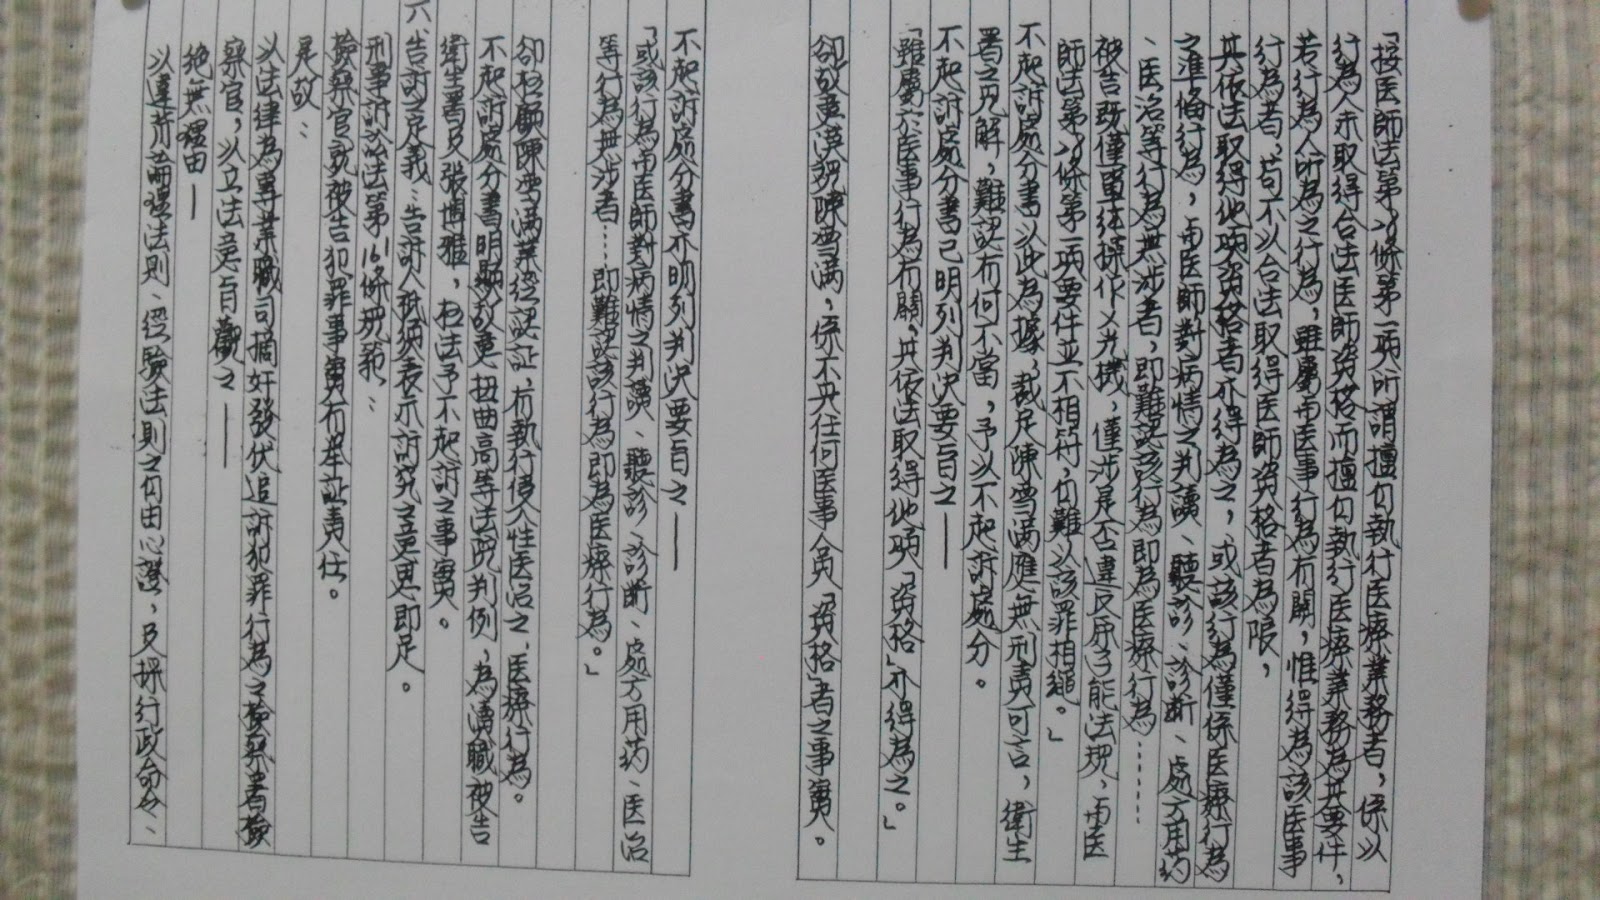 「按医師法第28條第一項所謂擅自執行医療業務者，係以
行為人未取得合法医師資格而擅自執行医療業務為其要件，
若行為人所為之行為，雖屬而医事行為有關，惟得為該医事
行為者，苟不以合法取得医師資格者為限，
其依法取得他項資格者亦得為之，或該行為僅係医療行為
之準備行為，而医師對病情之判讀、聽診、診断、處方用药
、医治等行為無涉者，即難認該行為即為医療行為……
被告既僅單純操作X光機，僅涉是否違反原子能法規，而医
師法第28條第一項要件並不相符，自難以該罪相繩。」
不起訴處分書以此為據，裁定陳雪满應無刑責可言，衛生
署之見解，難認有何不當，予以不起訴處分。
不起訴處分書已明列判決要旨之——
「雖屬於医事行為有關，其依法取得他項「資格」亦得為之。」
卻故意漠視陳雪满，係不具任何医事人員「資格」者之事實。
不起訴處分書亦明列判決要旨之——
「或該行為而医師對病情之判讀、聽診、診断、處方用药、医治
等行為無涉者……即難認該行為即為医療行為。」
卻枉顧陳雪满業經認証，有執行侵入性医治之，医療行為。
不起訴處分書明顯故意扭曲高等法院判例，為瀆職被告
衛生署及張博雅，枉法予不起訴之事實。
六、告訴之定義：告訴人祇須表示訴究之意思即足。
刑事訴訟法第161條規範：
檢察官就被告犯罪事實有举証責任。
是故：
以法律為專業職司摘奸發伏追訴犯罪行為之檢察署檢
察官，以立法意旨觀之——
絕無理由——
以違背論理法則、經驗法則之自由心證，及採行政命令、